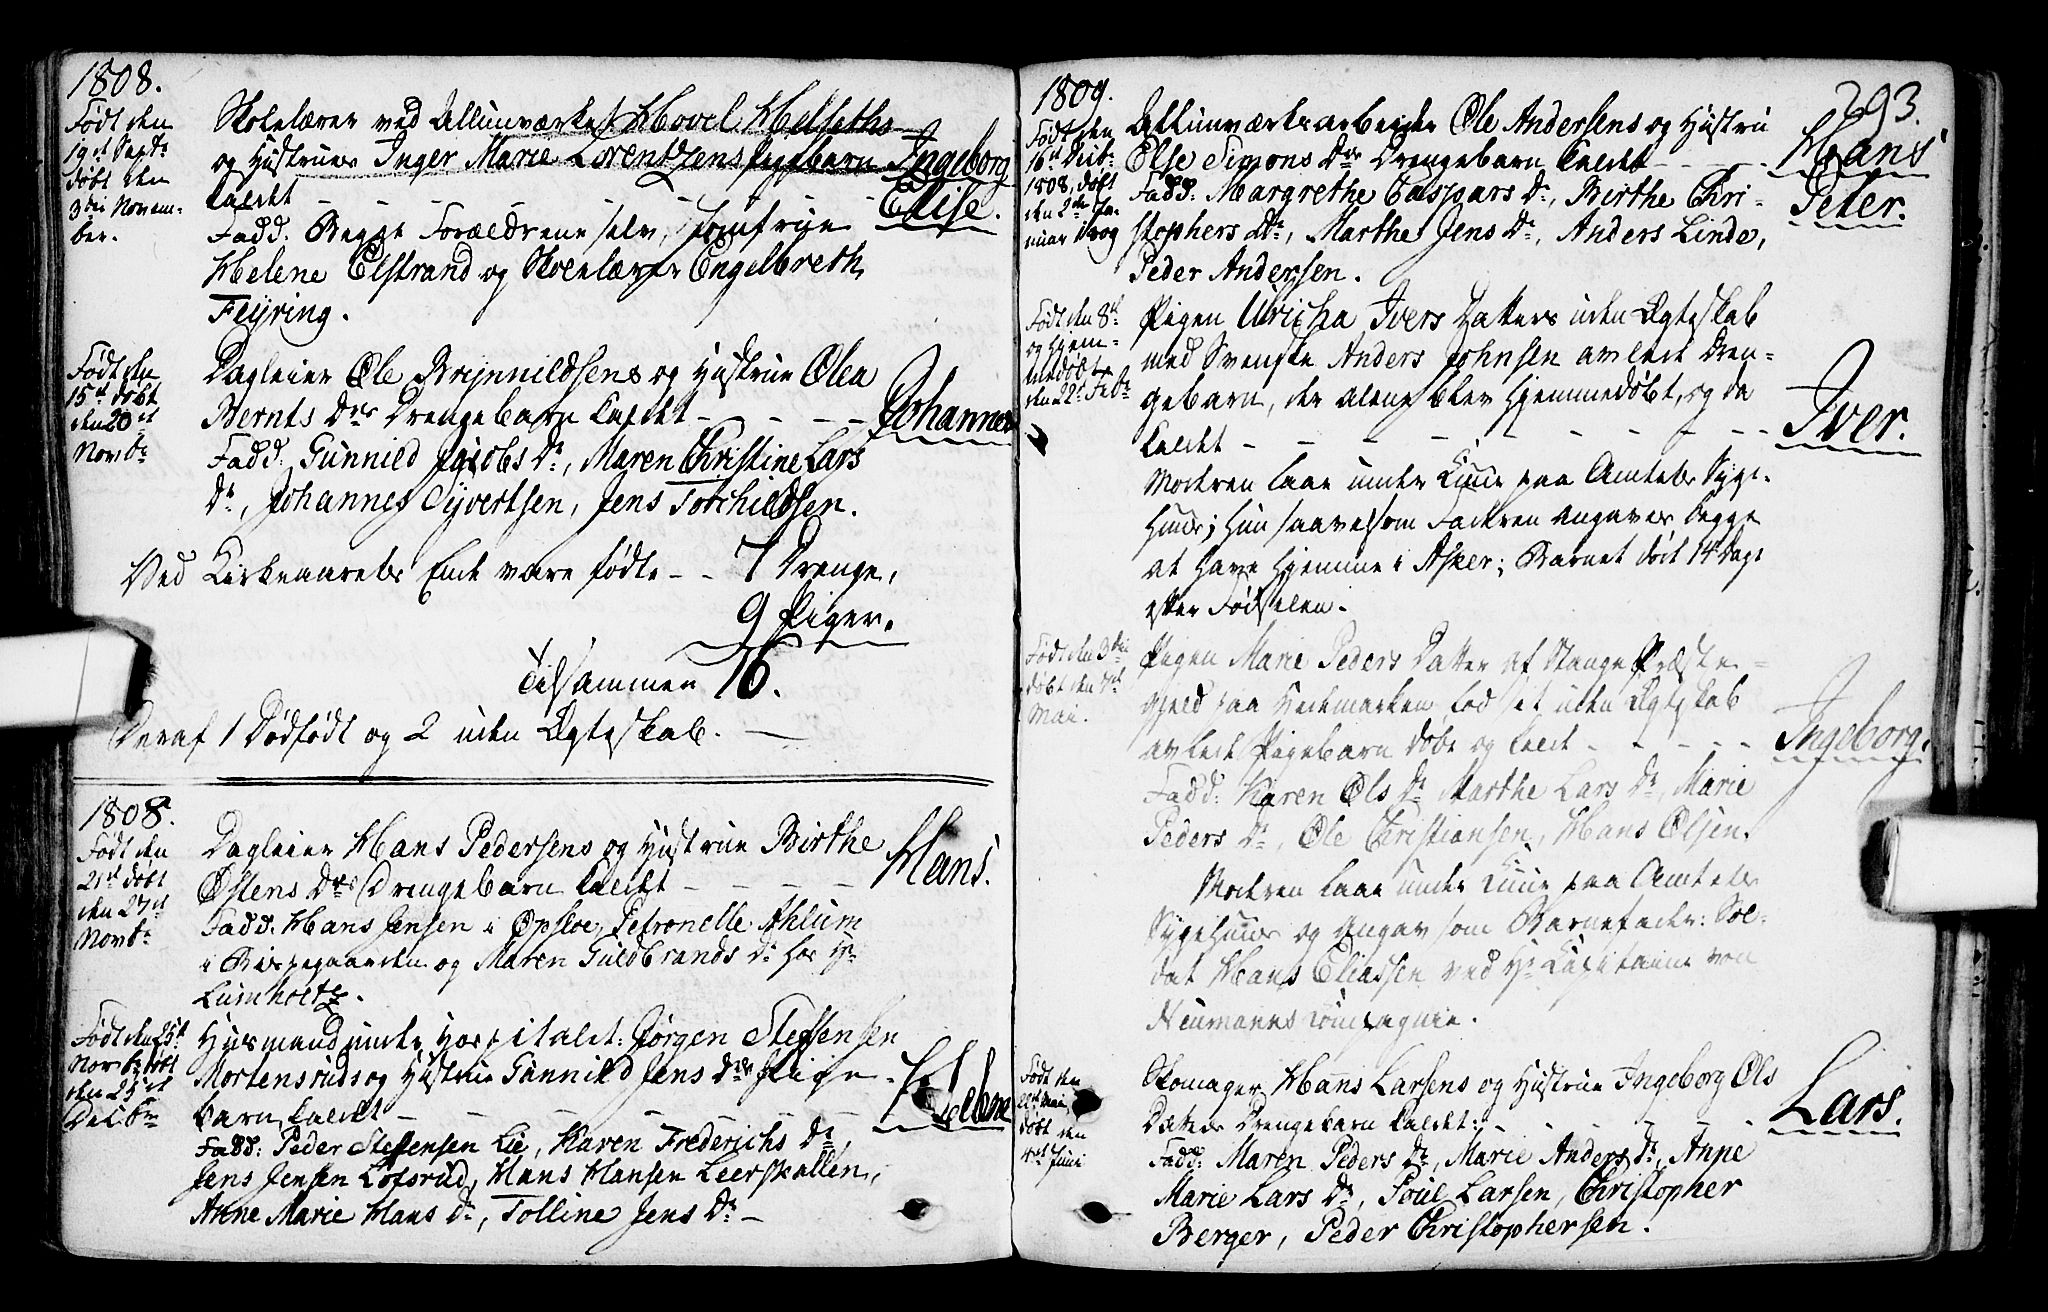 1808.
Født den
19de Septr
døbt den
3die Novem-
ber.
Skolelærer ved Allunværket Hovel Helseths
og Hustrues Inger Marie Lorentzens Pigebarn
kaldt - - - - - -
Ingeborg
Elise.
Fadd. Begge Forældrene selv, Jomfrue
Helene Elstrand og Skolelærer Engelbreth
Feyring.
Født den
15de døbt
den 20de
Novbr
Dagleier Ole Brynnildsens og Hustrue Olea
Bernts Drs Drengebarn kaldt - - - -
Johannes
Fadd. Gunnild Jacobs Dr, Maren Christine Lars
Dr, Johannes Syvertsen, Jens Torchildsen.
Ved Kirkeaarets Ende vare fødte - - 7 Drenge,
9 Piger.
Tilsammen 16.
Deraf 1 Dødfødt og 2 uden Ægteskab.
1808.
Født den
21de døbt
den 27de
Novbr
Dagleier Hans Pedersens og Hustrue Birthe
Østens Drs Drengebarn kaldt - - - -
Hans.
Fadd. Hans Jensen i Opsloe, Petronelle Ahlum
i Bispegaarden og Maren Guldbrands Dr hos Hr
Lumholtz.
Født den 25de
Novbr døbt
den 25de
Decbr
Husmand under Hospitalet: Jørgen Steffensen
Mortensruds og Hustrue Gunnild Jens Drs Pige-
barn kaldt - - - - - -
Helene
Fadd: Peder Steffensen Lie, Karen Frederichs Dr,
Jens Jensen Lofsrud, Hans Hansen Leerskallen,
Anne Marie Hans Dr, Tolline Jens Dr -
293.
1809.
Født den
16de Decbr
1808, døbt
den 2den Ja-
nuar 1809
Allunværksarbeider Ole Andersens og Hustru
Else Simons Drs Drengebarn kaldt - - - -
Hans
Peter.
Fadd: Margrethe Caspars Dr, Birthe Chri-
stophers Dr, Marthe Jens Dr, Anders Linde,
Peder Andersen.
Født den 8de
og hjem-
medøbt
den 22de Febr
Pigen Ulricha Ivers Datters uden Ægteskab
med Svenske Anders Johnsen avlede Dren-
gebarn, der alene blev hjemmedøbt, og da
kaldt - - - - - - - -
Iver.
Moderen laae under Kuur paa Amtets Syge-
huus; Hun saavelsom Faderen angaves begge
at have hjemme i Asker; Barnet døde 14 Dage
efter Fødselen.
Født den 3die
døbt den 7de
Mai.
Pigen Marie Peders Datter af Stange Præste-
gjeld paa Hedemarken lod sit uden Ægteskab
avlede Pigebarn døbe og kalde - - - - -
Ingeborg.
Fadd: Karen Ols Dr, Marthe Lars Dr, Marie
Peders Dr, Ole Christiansen, Hans Olsen.
Moderen laae under Kuur paa Amtets
Sygehuus og angav som Barnefader: Sol-
dat Hans Eliassen ved Hr Capitaine von
Neumanns Compagnie.
Født den
Mai,
døbt den
4de Juni
Skomager Hans Larsens og Hustrue Ingeborg Ols
Datters Drengebarn kaldet: - - - - - -
Lars.
Fadd: Maren Peders Dr, Marie Anders Dr, Anne
Marie Lars Dr, Poul Larsen, Christopher
Berger, Peder Christophersen.